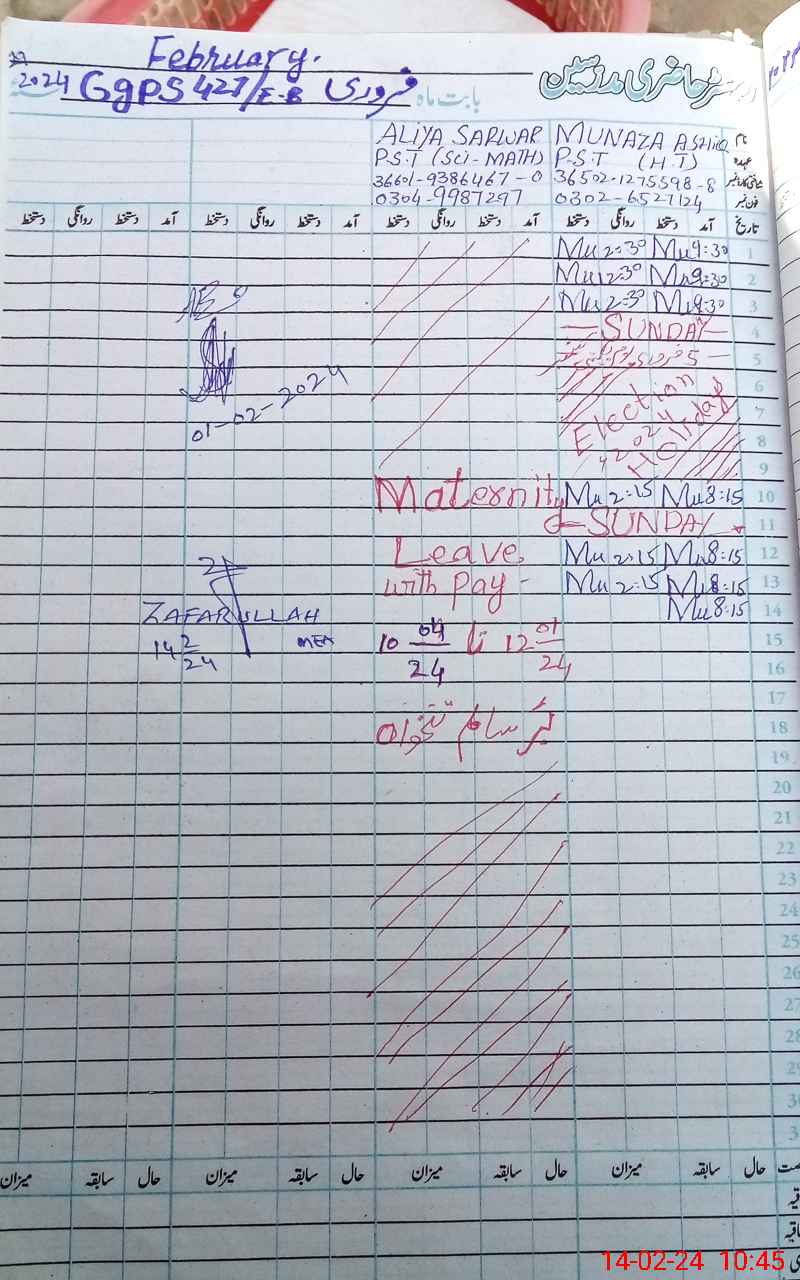 February.
2024 GgPS 427/E-B فروری بابت ماہ رجسٹر حاضری مدرسین
ALIYA SARWAR MUNAZA ASHIQ نام
P.S.T (Sci-MATH) P.S.T (H.T) عہدہ
36601-9386467-0 36502-1275598-8 شناختی کارڈ نمبر
0304-9987297 0302-6527124 فون نمبر
تاریخ آمد دستخط روانگی دستخط آمد دستخط روانگی دستخط آمد دستخط روانگی دستخط آمد دستخط روانگی دستخط
Mu 2:30 Mu 9:30 1
Mu 2:30 Mu 9:30 2
Mu 2:30 Mu 9:30 3
SUNDAY 4
5 فروری 5
6
01-02-2024
Election 7
2024 8
Holiday 9
Maternity Mu 2:15 Mu 8:15 10
SUNDAY 11
Leave Mu 2:15 Mu 8:15 12
with Pay - Mu 2:15 Mu 8:15 13
ZAFARULLAH Mu 8:15 14
14 2/24 MEA 10 04/24 تا 12 01/24 15
16
17
بمعہ سالم تنخواہ 18
19
20
21
22
23
24
25
26
27
28
29
30
3
حال سابقہ میزان حال سابقہ میزان حال سابقہ میزان حال سابقہ میزان
14-02-24 10:45